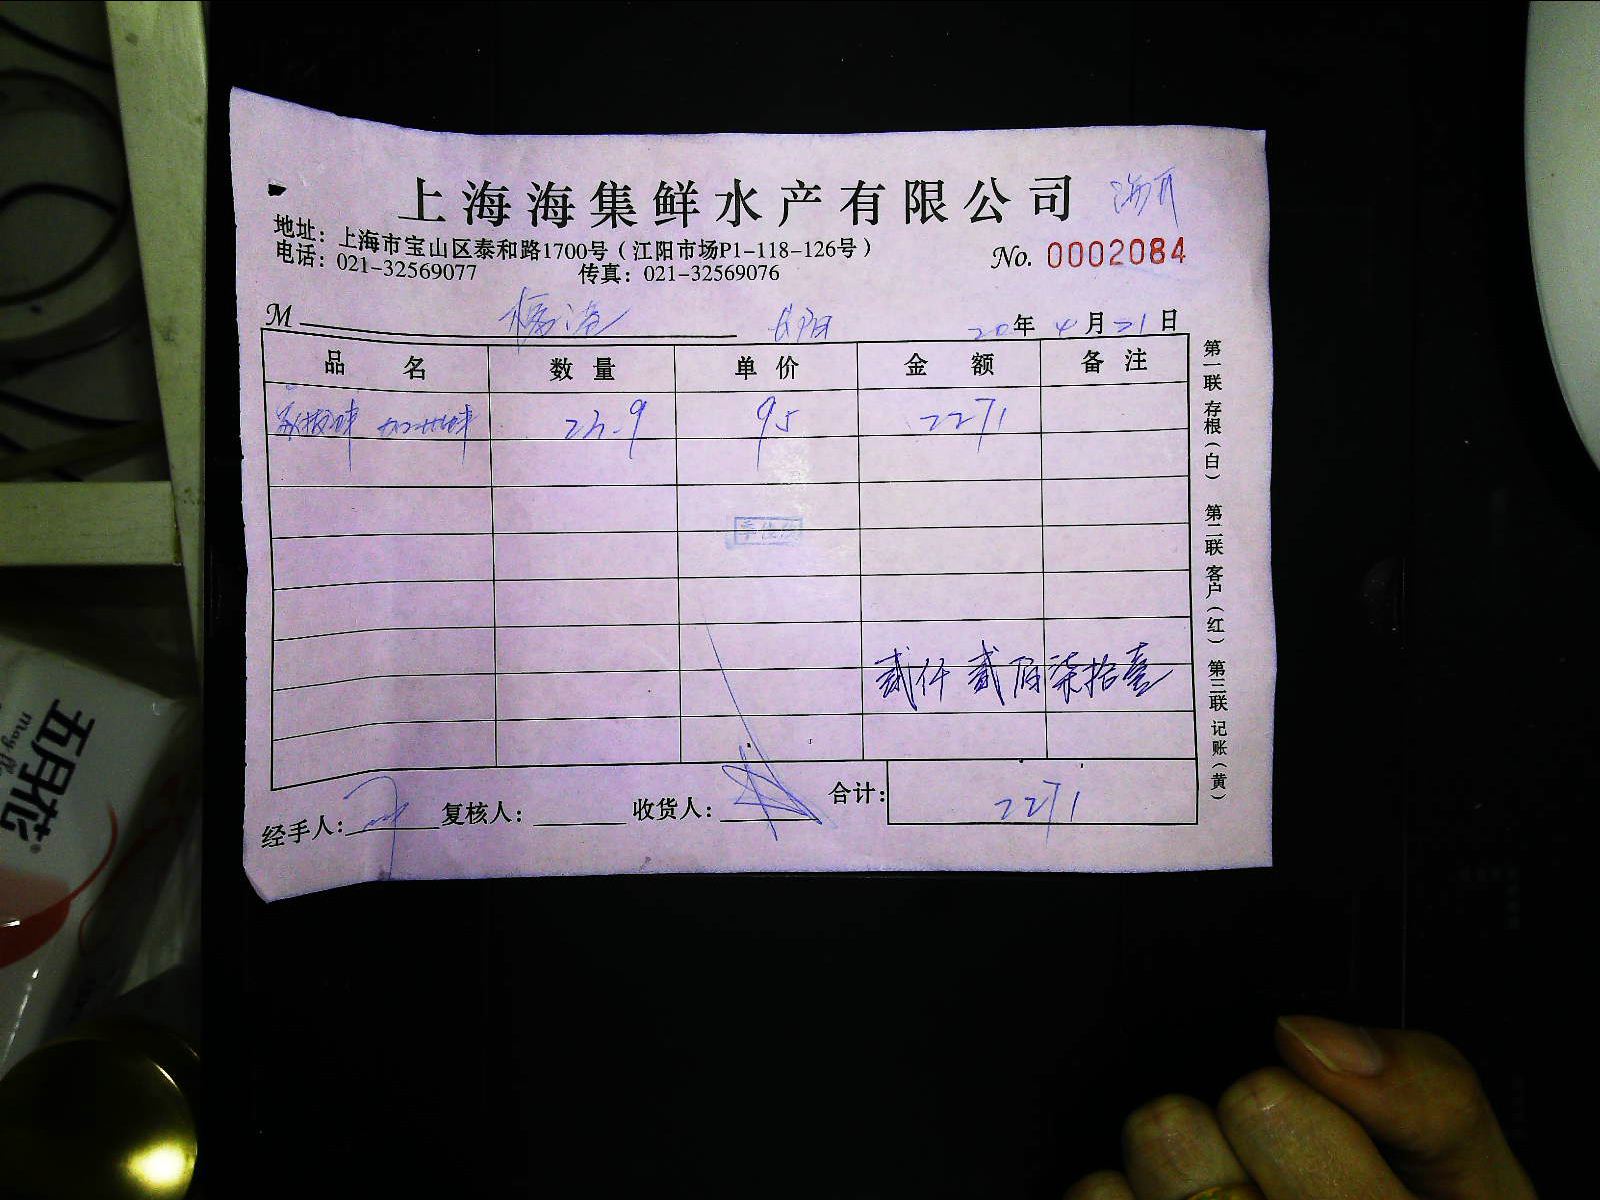 上海海集鲜水产有限公司
地址：上海市宝山区泰和路1700号（江阳市场P1-118-126号）
电话：021-32569077 传真：021-32569076
No. 0002084
M
20年4月21日
品名 数量 单价 金额 备注
23.9 95 2271
贰仟贰佰柒拾壹
经手人： 复核人： 收货人： 合计： 2271
第一联 存根（白） 第二联 客户（红） 第三联 记账（黄）
五月花